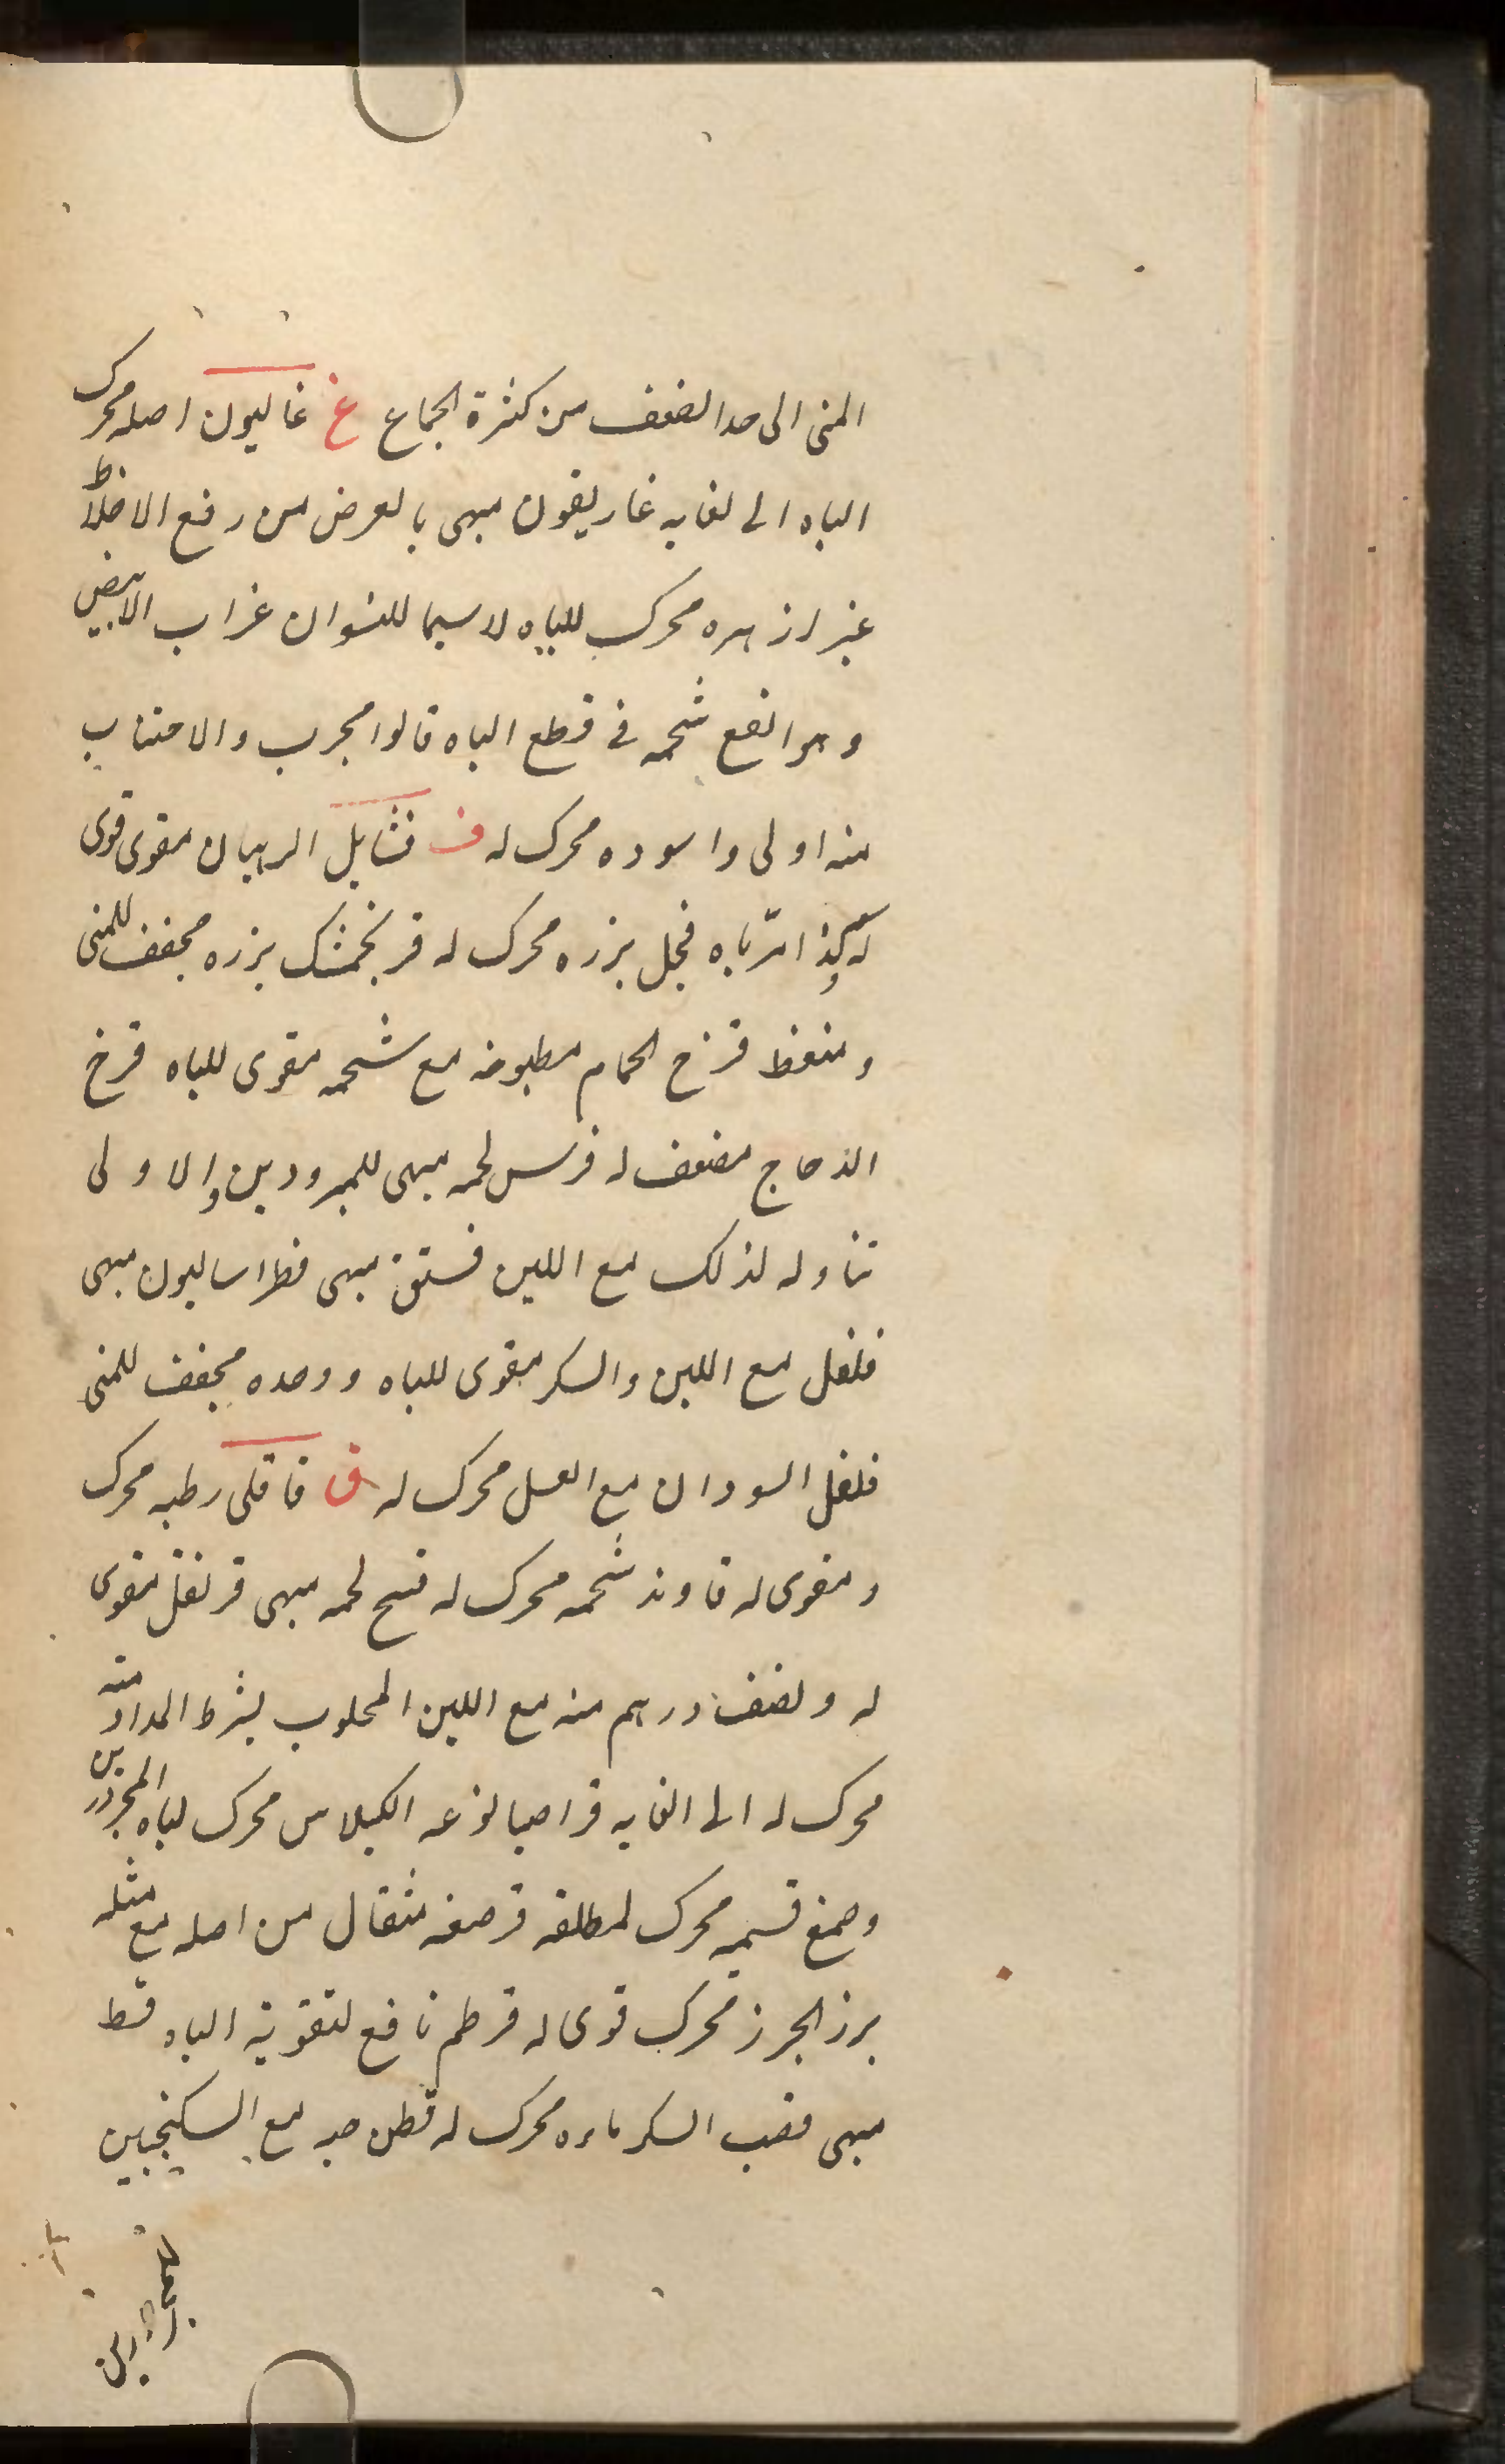 المنى الى حد الضعف من كثرة الجماع غ غاليون اصله محرك
الباه الى لغايه غاريقون مبهى بالعرض من رفع الاخلاط
غبيرا زهره محرك للباه لا سيما للنسوان غراب الابيض
وهو انفع شحمه فى قطع الباه قالوا مجرب والاجتناب
منه اولى واسوده محرك له ف فشايل الرهبان مقوى قوى
له وكذا مرباه فجل بزره محرك له فرنجمشك بزره مجفف للمنى
ومنعظ فرخ الحمام مطبوخه مع شحمه مقوى للباه فرخ
الدجاج مضعف له فرس لحمه مبهى للمبرودين والاولى
تناوله لذلك مع اللبن فستق مبهى فطراساليون مبهى
فلفل مع اللبن والسكر مقوى للباه ووحده مجفف للمنى
فلفل السودان مع العسل محرك له ق قاقلى رطبه محرك
ومقوى له قاوند شحمه محرك له قبج لحمه مبهى قرنفل مقوى
له ونصف درهم منه مع اللبن المحلوب بشرط المداومة
محرك له الى الغايه قراصيا نوعه الكيلاس محرك لباه المحرورين
وصمغ قسميه محرك لمطلقه قرصعنه مثقال من اصله مع مثله
برز الجرز محرك قوى له قرطم نافع لتقوية الباه قسط
مبهى قصب السكر ماءه محرك له قطن حبه مع السكنجبين